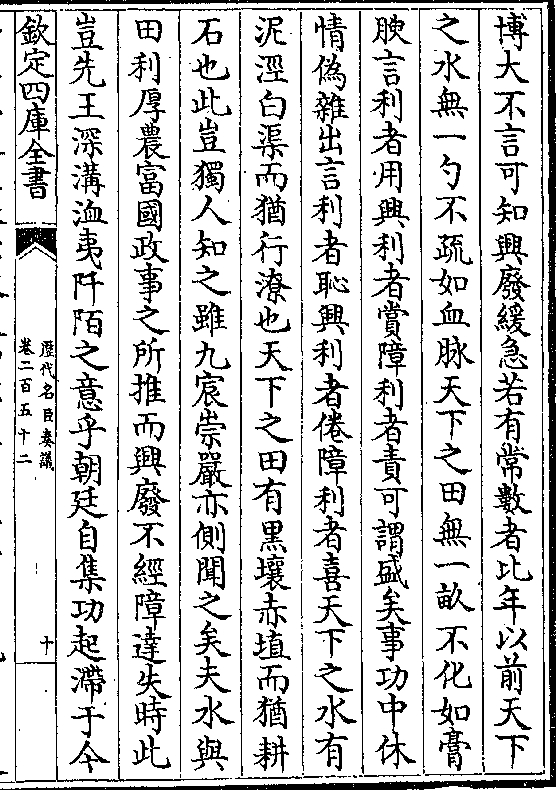 博大不言可知興廢緩急若有常數者比年以前天下
之水無一勺不疏如血脉天下之田無一畝不化如膏
腴言利者用興利者賞障利者責可謂盛矣事功中休
情偽雜出言利者恥興利者倦障利者喜天下之水有
泥涇白渠而猶行潦也天下之田有黒壤赤埴而猶耕
石也此豈獨人知之雖九宸崇嚴亦側聞之矣夫水與
田利厚農富國政事之所推而興廢不經障達失時此
豈先王深溝洫夷阡陌之意乎朝廷自集功起滯于今
欽定四庫全書
歴代名臣奏議
卷二百五十二
十